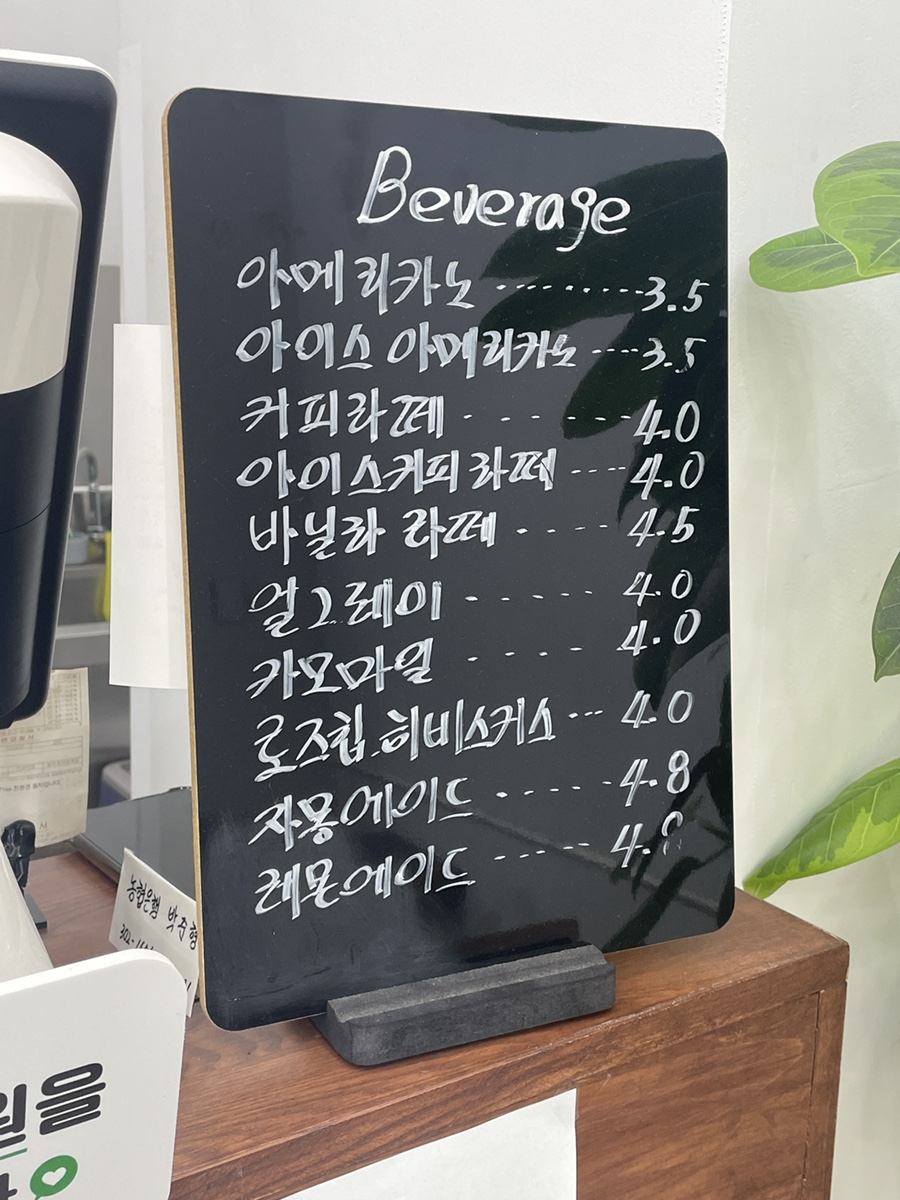 Beverage
아메리카노 ········· 3.5
아이스 아메리카노 ···· 3.5
커피라떼 · - - - - - - 4.0
아이스커피라떼 ---- 4.0
바닐라 라떼 - - - - - 4.5
얼그레이 - - - - - - 4.0
카모마일 · - - - - 4.0
로즈힙.히비스커스 --- 4.0
자몽에이드 ------ 4.8
레몬에이드 ------ 4.8
농협은행 박주형
302-
을